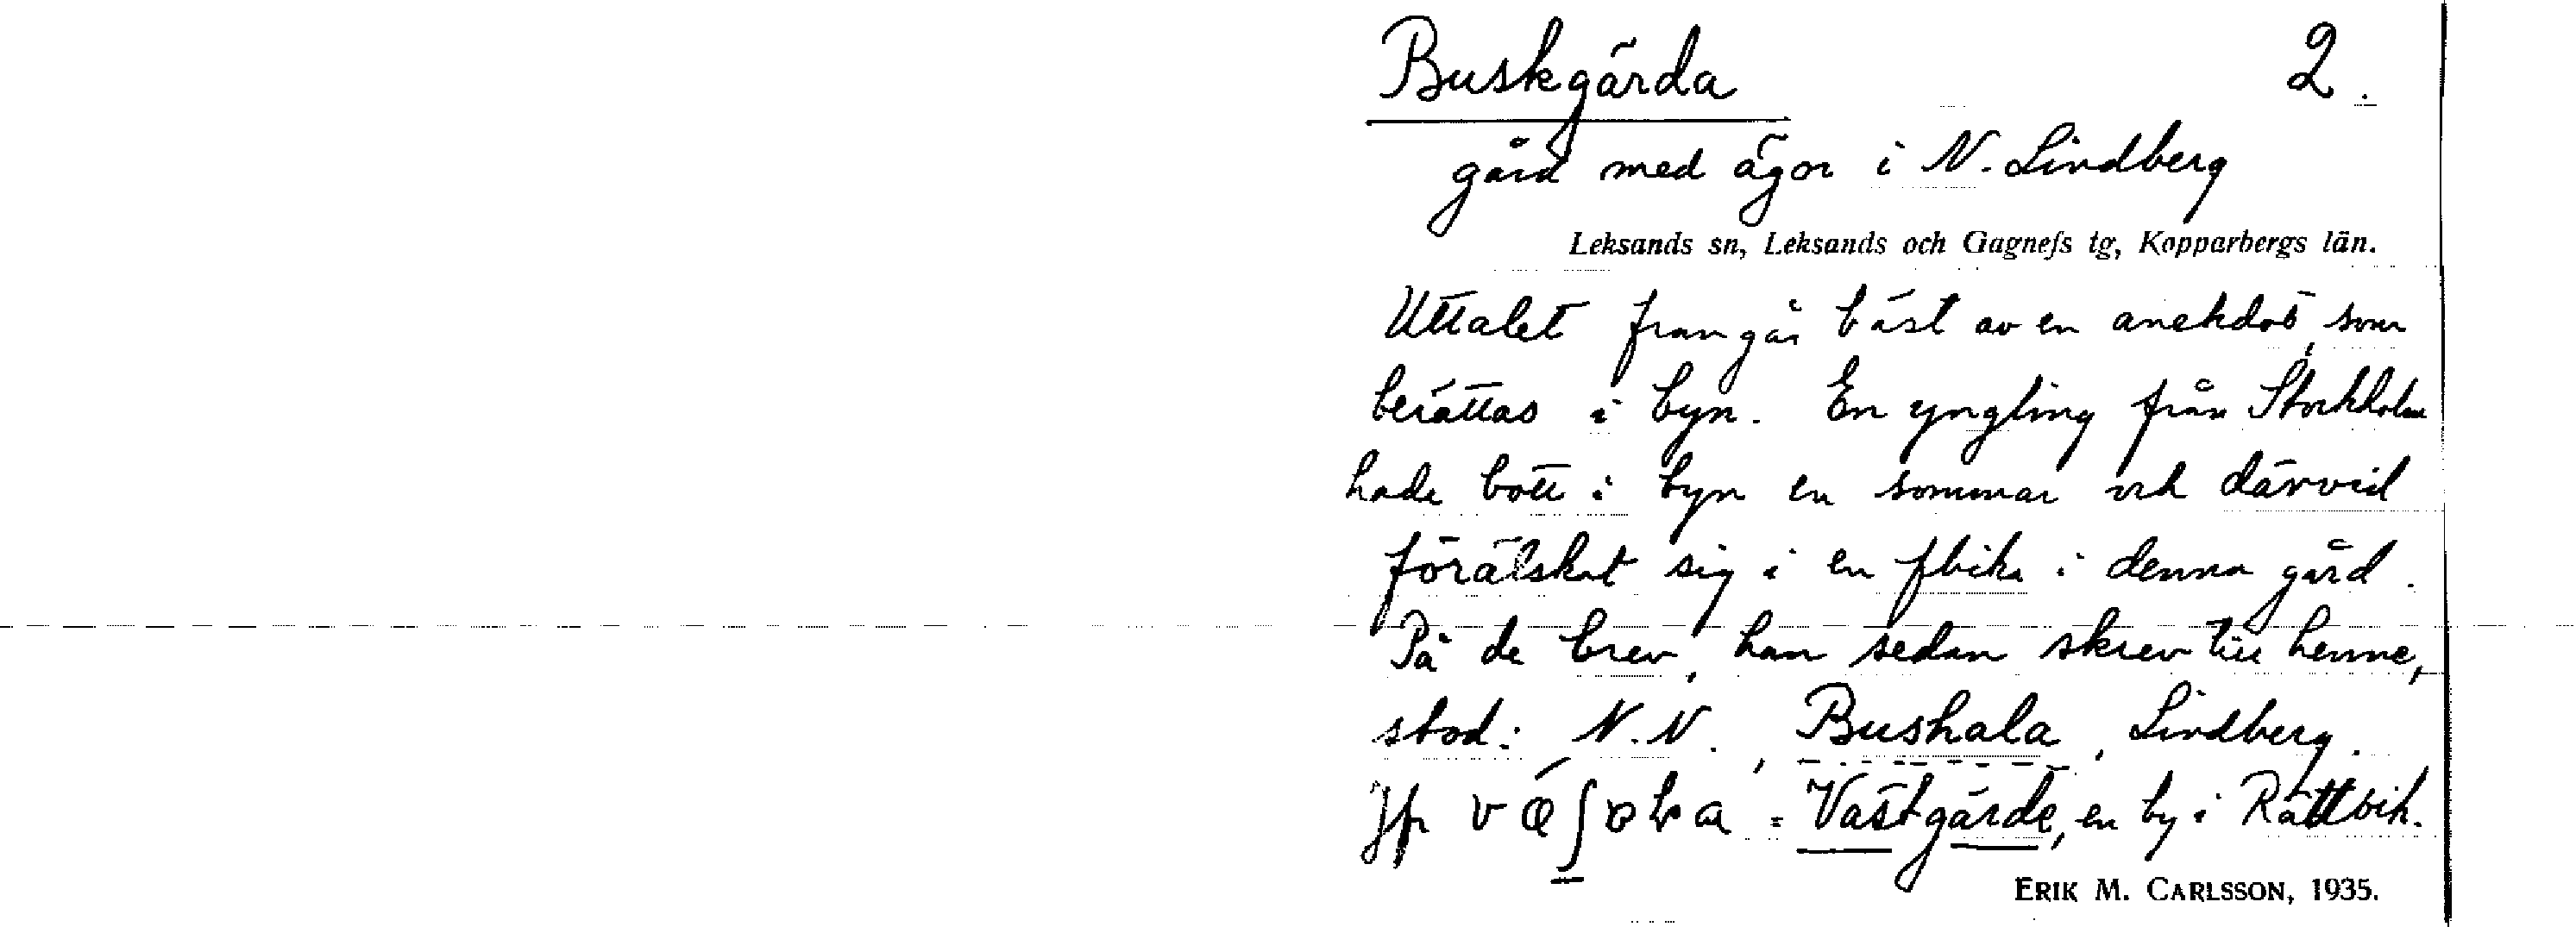 Buskgärda 2.
gård med ägor i N. Lindberg
Leksands sn, Leksands och Gagnefs tg, Kopparbergs län.
Uttalet framgår bäst av en anekdot, som
berättas i byn. En yngling från Stockholm
hade bott i byn en sommar och därvid
förälskat sig i en flicka i denna gård.
På de brev, han sedan skrev till henne,
stod: N.N., Bushala, Lindberg.
Jfr = Västgärde, en by i Rättvik.
ERIK M. CARLSSON, 1935.